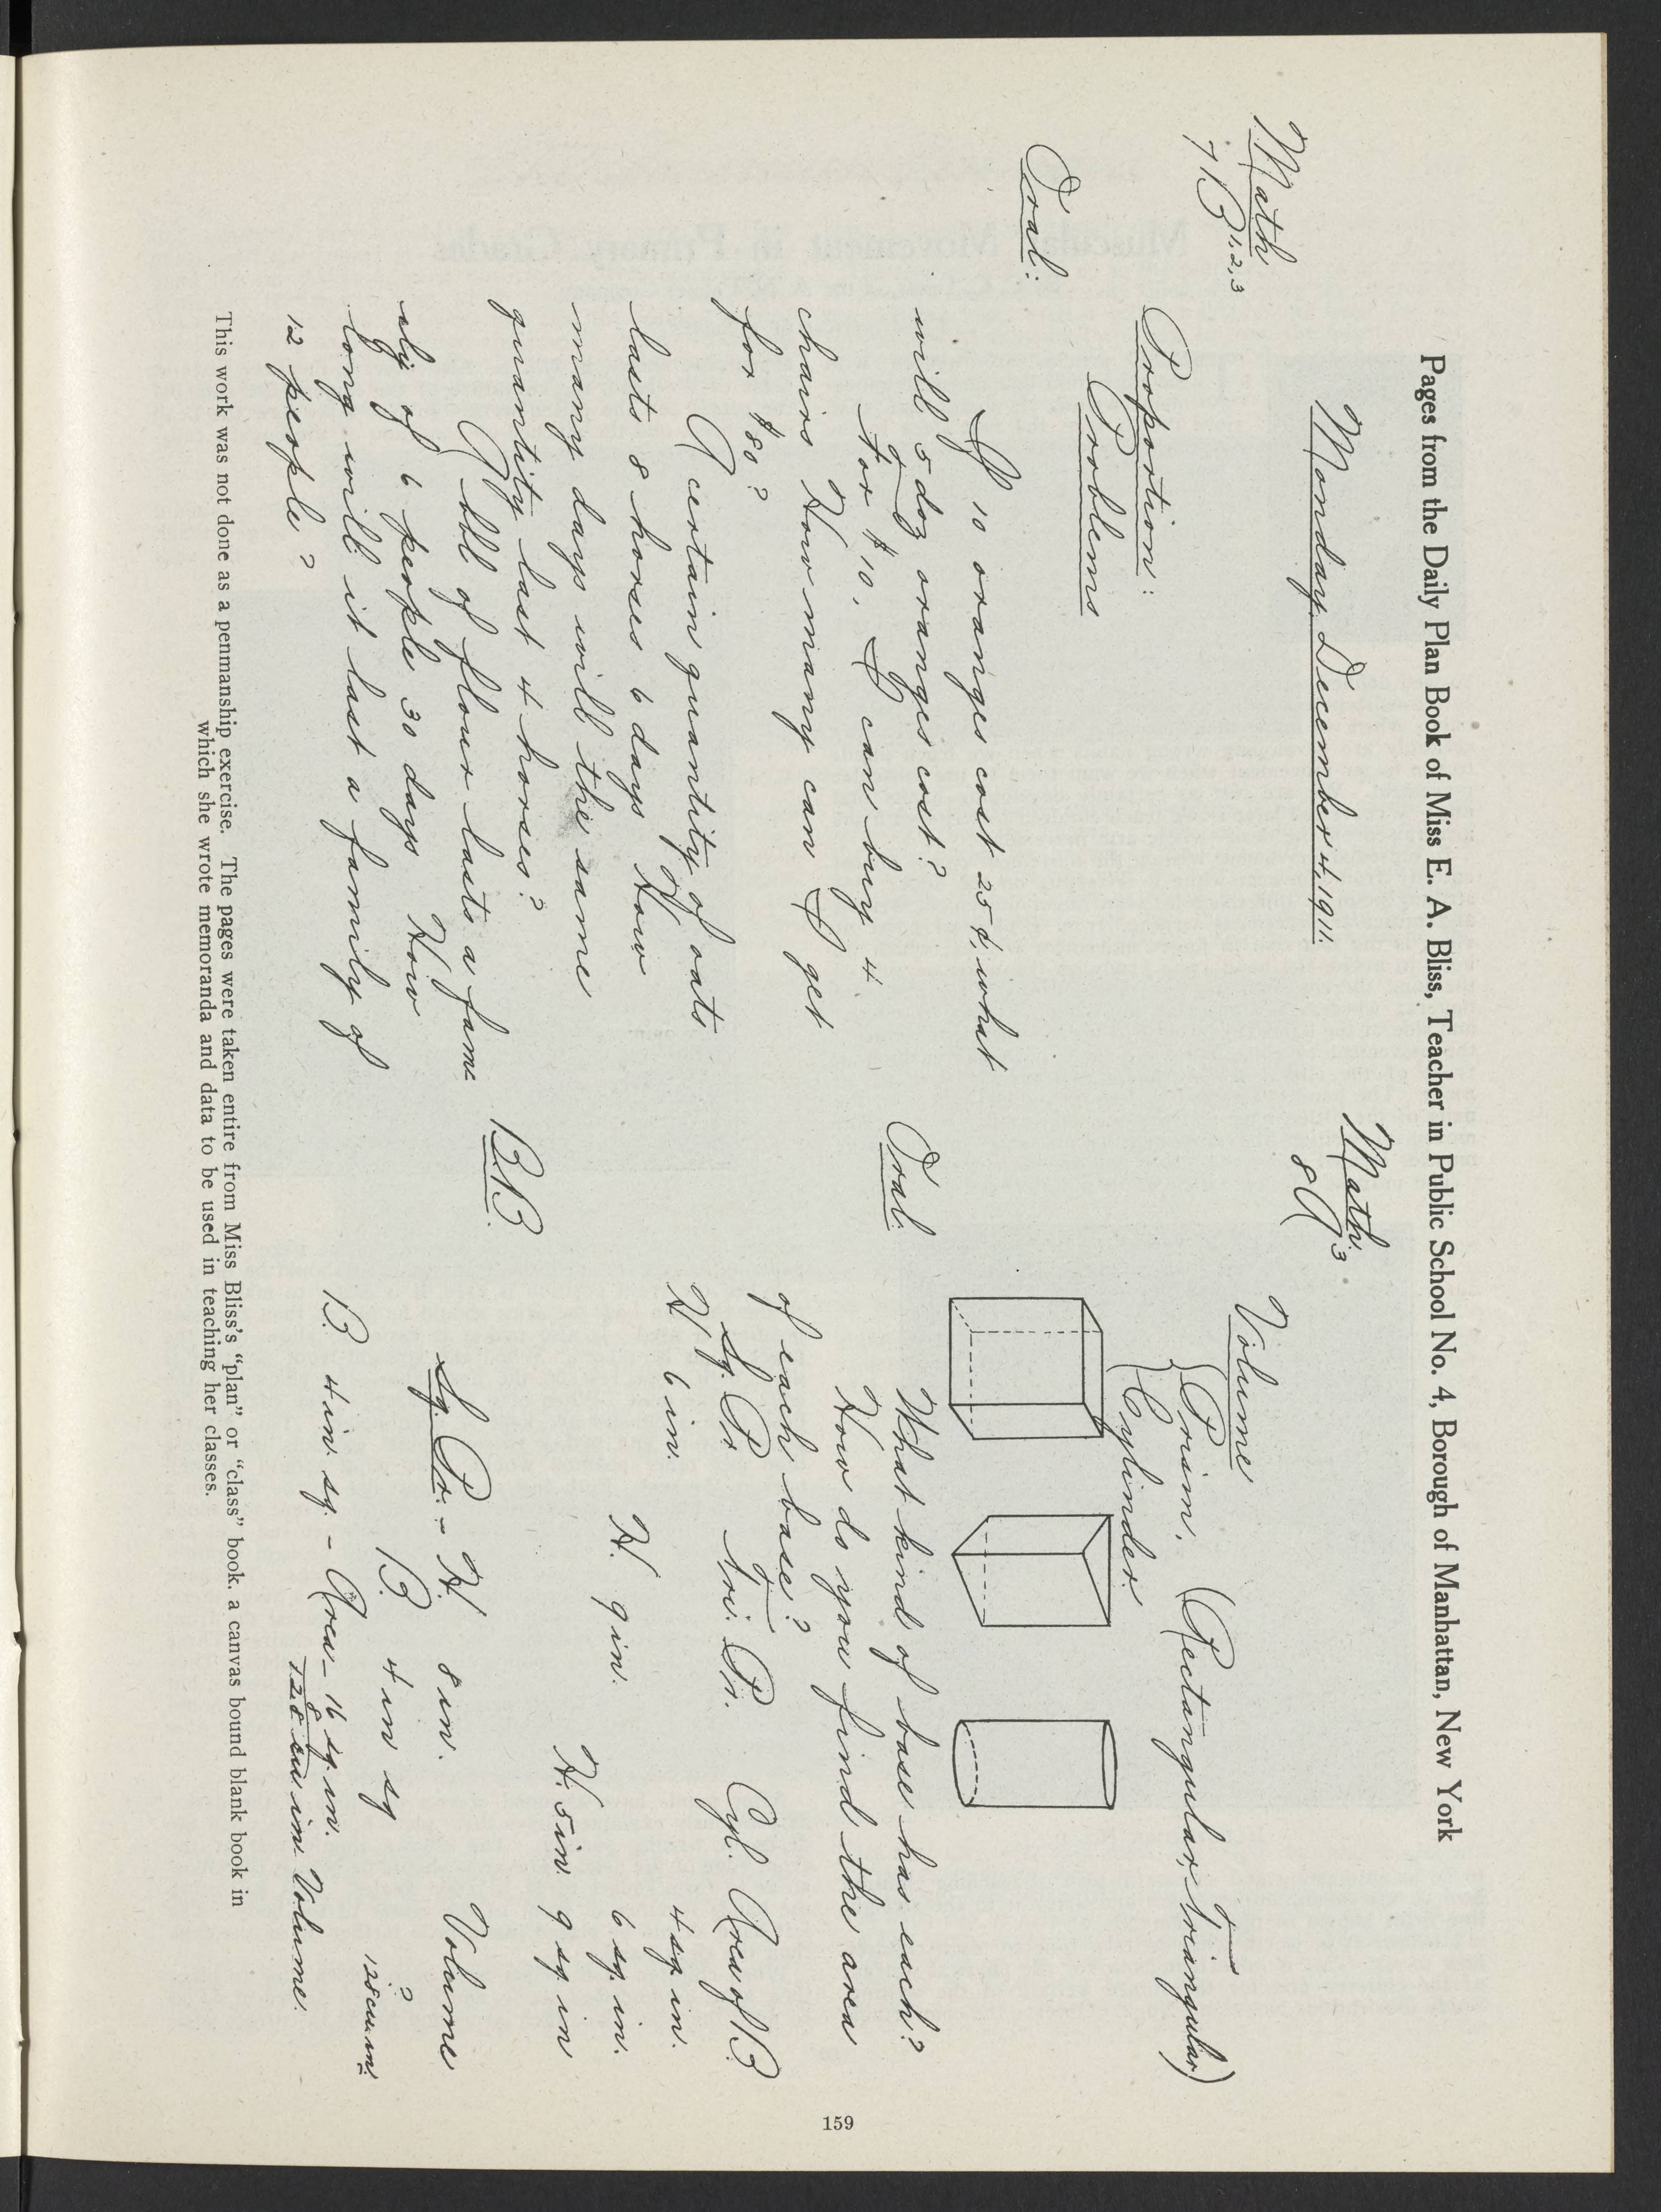 Pages from the Daily Plan Book of Miss E. A. Bliss, Teacher in Public School No. 4, Borough of Manhattan, New York
Monday, December 4, 1911.
Math
7B 1, 2, 3
Proportion:
Problems
Oral:
If 10 oranges cost 25¢, what
will 5 doz oranges cost?
For $10. I can buy 4
chairs How many can I get
for $80?
A certain quantity of oats
lasts 8 horses 6 days How
many days will the same
quantity last 4 horses?
A bbl of flour lasts a fam-
ily of 6 people 30 days How
long will it last a family of
12 people?
Math.
8A 3
Volume
Prism. (Rectangular, Triangular)
Cylinder.
Oral.
What kind of base has each?
How do you find the area
of each base?
Sq. Pr Tri. Pr. Cyl. Area of B
H 6 in. 4 sq. in.
H. 9 in. 6 sq. in.
H. 5 in. 9 sq. in
B.B.
Sq. Pr. - H. 8 in. Volume
B. 4 in sq ?
128 cu. in.
B. 4 in. sq. - Area - 16 sq. in.
8
128 cu. in. Volume.
This work was not done as a penmanship exercise. The pages were taken entire from Miss Bliss's "plan" or "class" book, a canvas bound blank book in
which she wrote memoranda and data to be used in teaching her classes.
159